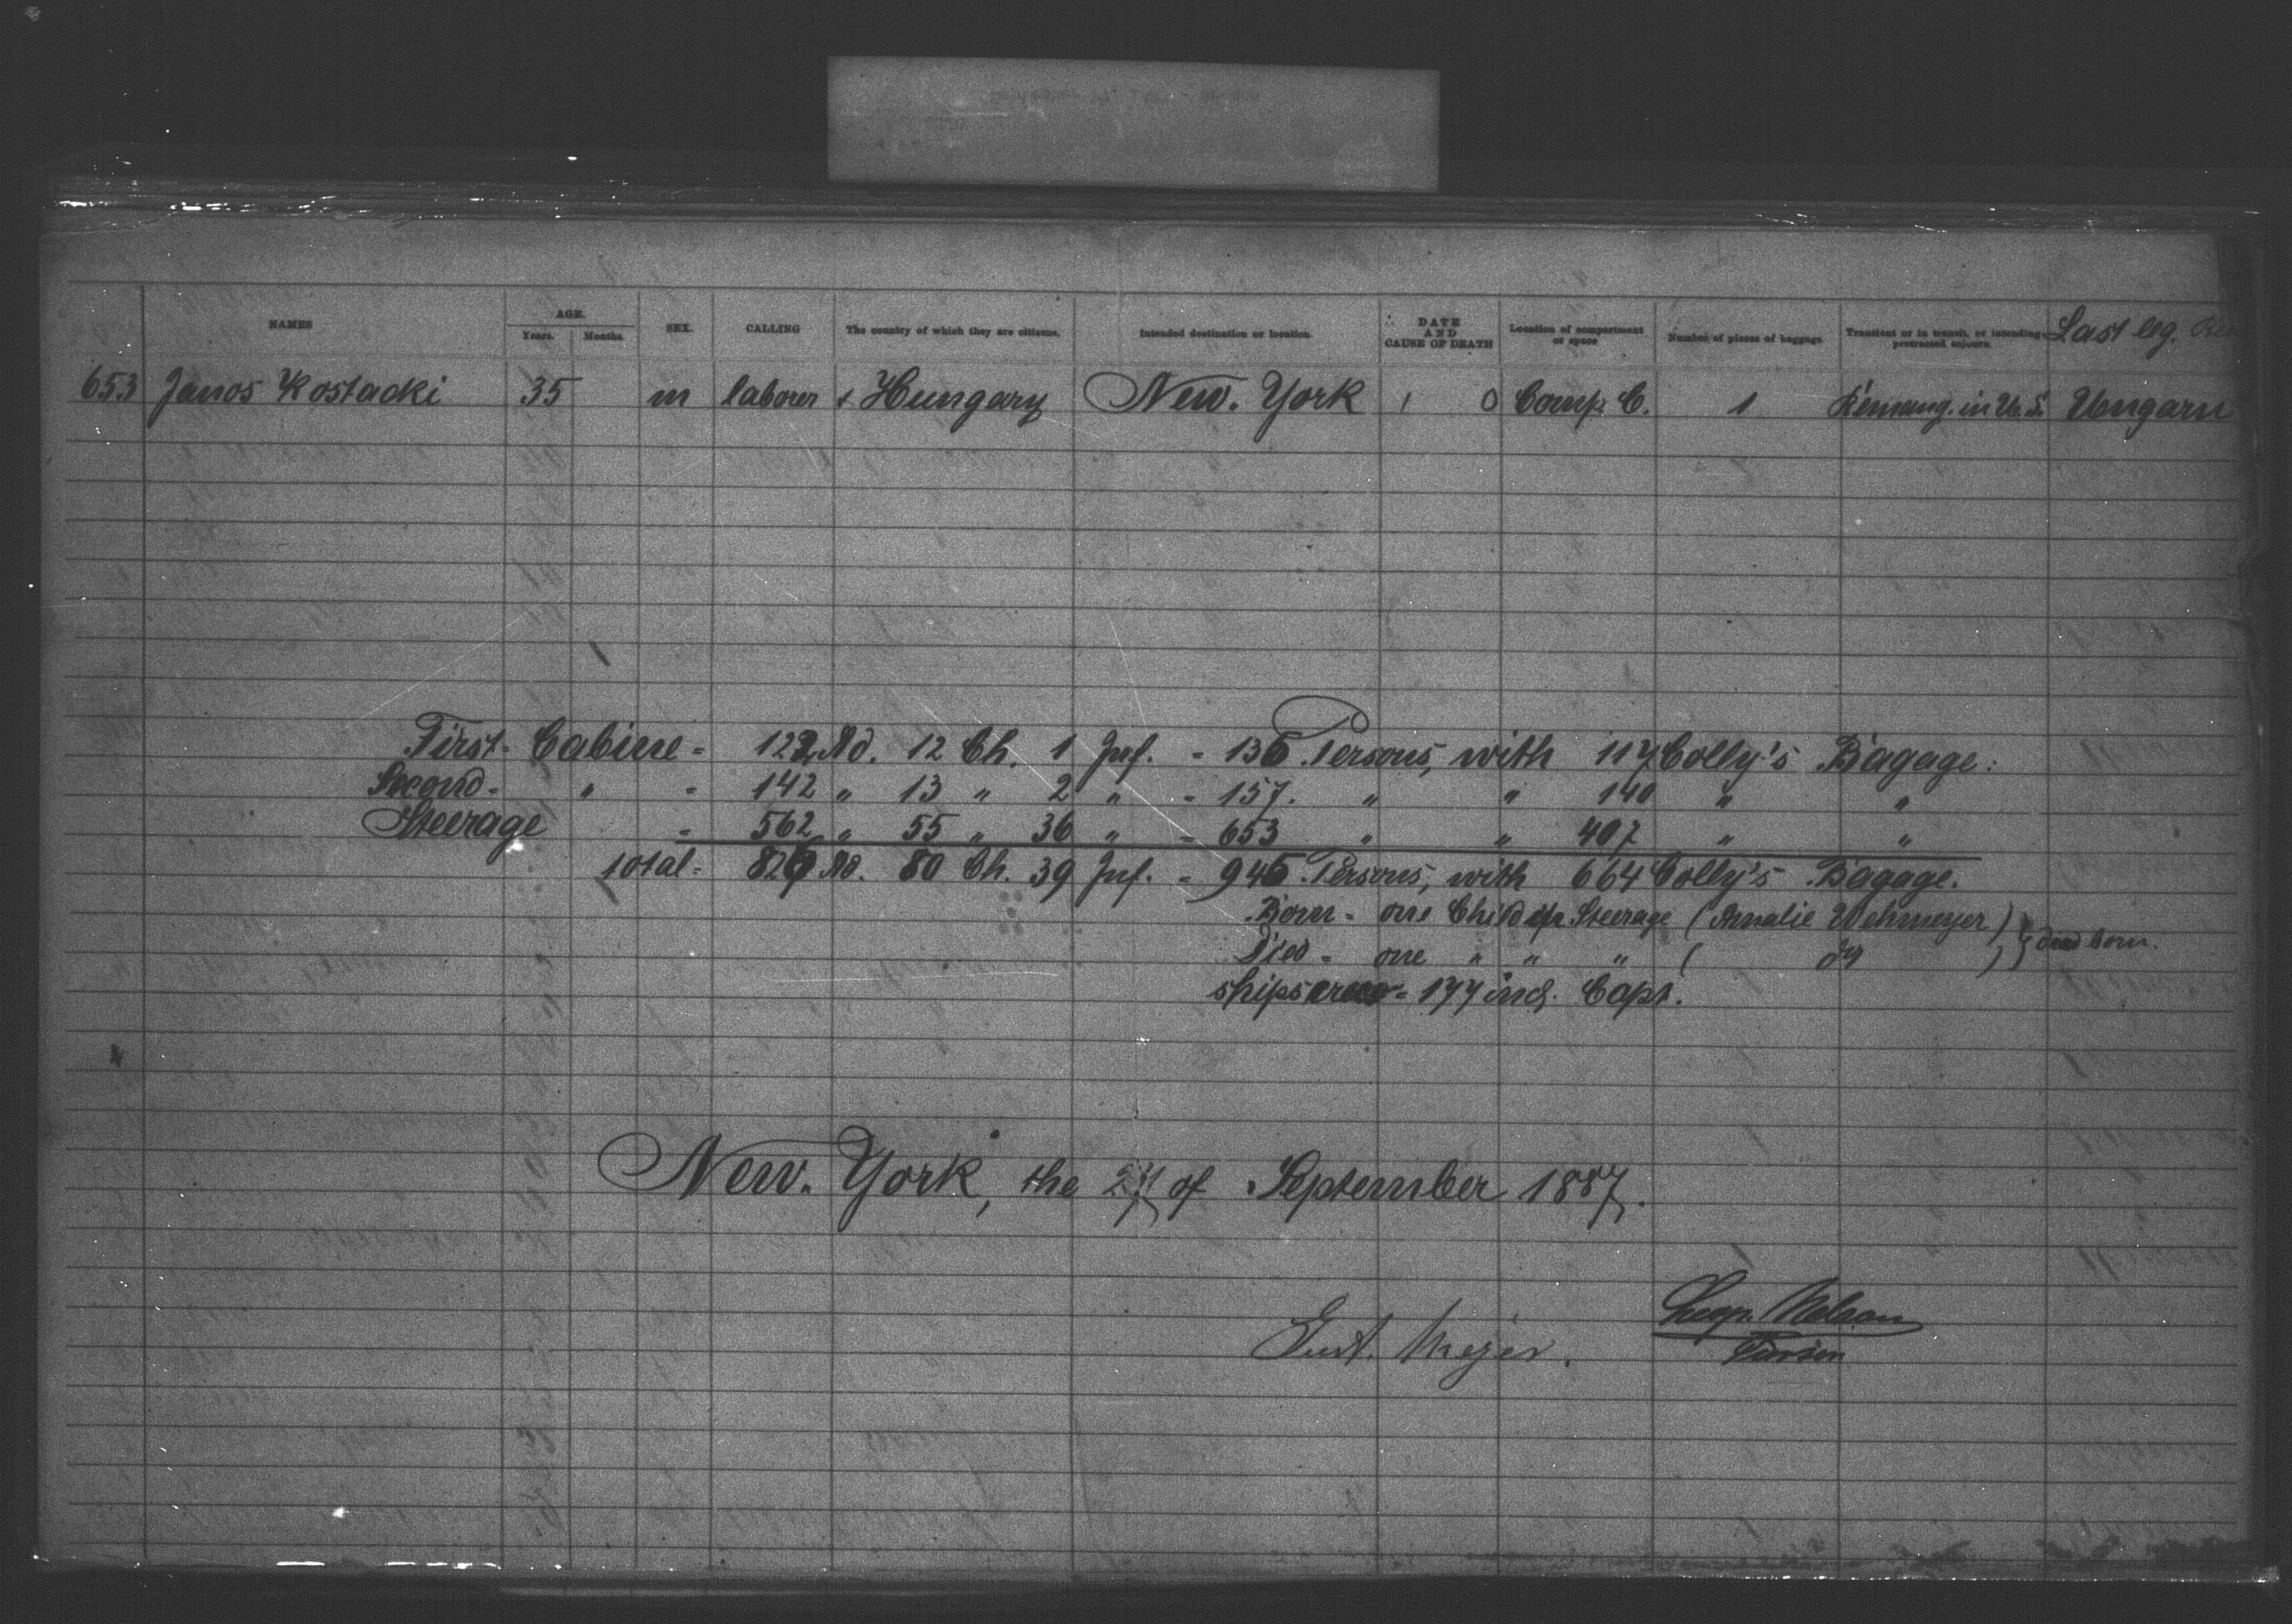 NAMES AGE. Years. Months. SEX. CALLING The country of which they are citizens. Intended destination or location. DATE AND CAUSE OF DEATH Location of compartment or space Number of pieces of baggage Transient or in transit, or intending protracted sojourn. Last leg.
653 Janos Kostacki 35 m laborer + Hungary New-York 1 0 Comp. C. 1 Remang. in U.S. Ungarn
First-Cabine = 122 Ad. 12 Ch. 1 Inf. = 136 Persons, with 117 Colly's Bagage.
Second- " = 142 " 13 " 2 " = 157. " " 140 " "
Steerage = 562 " 55 " 36 " = 653 " " 407 " "
total = 826 Ad. 80 Ch. 39 Inf. = 946 Persons, with 664 Colly's Bagage.
Born = one Child in Steerage (Amalie Wehmeyer)
Died = one " " " ( ) } dead born.
ships crew = 177 incl. Capt.
New-York, the of September 1887.
Gust. Meyer.